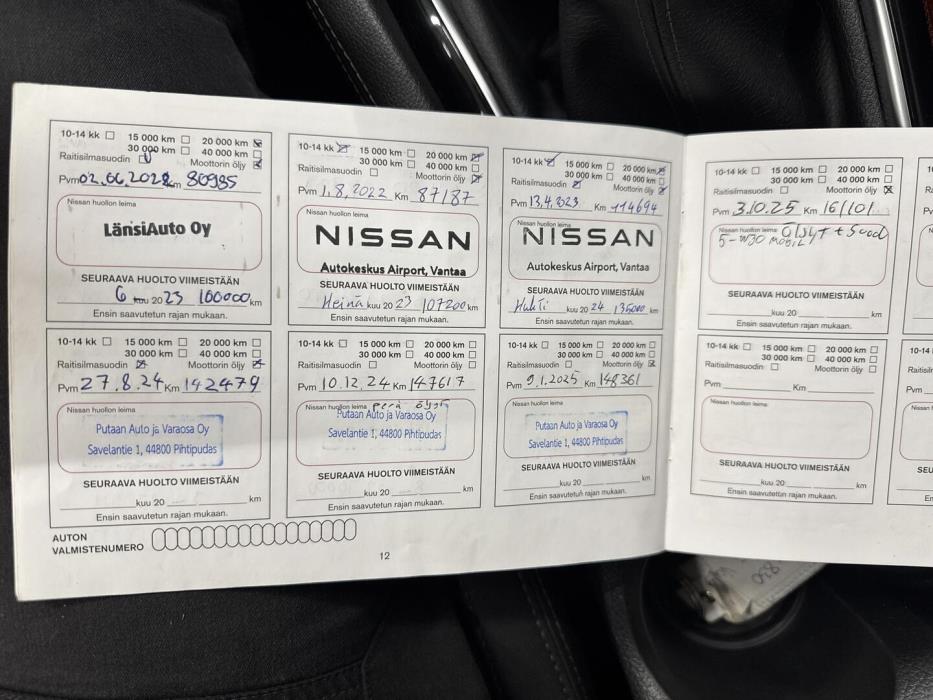 10-14 kk 15 000 km 20 000 km
30 000 km 40 000 km
Raitisilmasuodin Moottorin öljy
Pvm 02.06.2022 km 80985
Nissan huollon leima
LänsiAuto Oy
SEURAAVA HUOLTO VIIMEISTÄÄN
6 kuu 20 23 100000 km
Ensin saavutetun rajan mukaan.
10-14 kk 15 000 km 20 000 km
30 000 km 40 000 km
Raitisilmasuodin Moottorin öljy
Pvm 1.8.2022 Km 87187
Nissan huollon leima
NISSAN
Autokeskus Airport, Vantaa
SEURAAVA HUOLTO VIIMEISTÄÄN
Heinä kuu 20 23 107200 km
Ensin saavutetun rajan mukaan.
10-14 kk 15 000 km 20 000 km
30 000 km 40 000 km
Raitisilmasuodin Moottorin öljy
Pvm 13.4.2023 Km 114694
Nissan huollon leima
NISSAN
Autokeskus Airport, Vantaa
SEURAAVA HUOLTO VIIMEISTÄÄN
Huhti kuu 20 24 135000 km
Ensin saavutetun rajan mukaan.
10-14 kk 15 000 km 20 000 km
30 000 km 40 000 km
Raitisilmasuodin Moottorin öljy
Pvm 3.10.25 Km 161101
Nissan huollon leima
ÖLJYT + Suod
5-W30 MOBIL
SEURAAVA HUOLTO VIIMEISTÄÄN
kuu 20 km
Ensin saavutetun rajan mukaan.
10-14 kk 15 000 km 20 000 km
30 000 km 40 000 km
Raitisilmasuodin Moottorin öljy
Pvm 27.8.24 Km 142479
Nissan huollon leima
Putaan Auto ja Varaosa Oy
Savelantie 1, 44800 Pihtipudas
SEURAAVA HUOLTO VIIMEISTÄÄN
kuu 20 km
Ensin saavutetun rajan mukaan.
10-14 kk 15 000 km 20 000 km
30 000 km 40 000 km
Raitisilmasuodin Moottorin öljy
Pvm 10.12.24 Km 147617
Nissan huollon leima perä öljyt
Putaan Auto ja Varaosa Oy
Savelantie 1, 44800 Pihtipudas
SEURAAVA HUOLTO VIIMEISTÄÄN
kuu 20 km
Ensin saavutetun rajan mukaan.
10-14 kk 15 000 km 20 000 km
30 000 km 40 000 km
Raitisilmasuodin Moottorin öljy
Pvm 9.1.2025 Km 148361
Nissan huollon leima
Putaan Auto ja Varaosa Oy
Savelantie 1, 44800 Pihtipudas
SEURAAVA HUOLTO VIIMEISTÄÄN
kuu 20 km
Ensin saavutetun rajan mukaan.
10-14 kk 15 000 km 20 000 km
30 000 km 40 000 km
Raitisilmasuodin Moottorin öljy
Pvm Km
Nissan huollon leima
SEURAAVA HUOLTO VIIMEISTÄÄN
kuu 20 km
Ensin saavutetun rajan mukaan.
10-14
Raitisi
Pvm
Nissan
Ensi
AUTON
VALMISTENUMERO
12